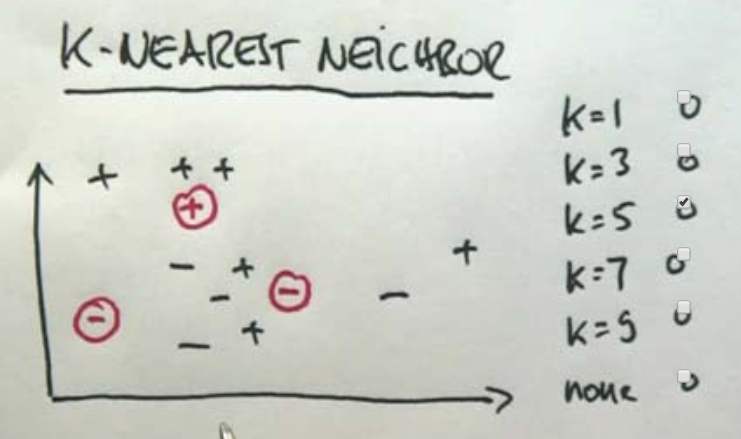 K-NEAREST NEIGHBOR
k=1
k=3
k=5
k=7
k=9
none